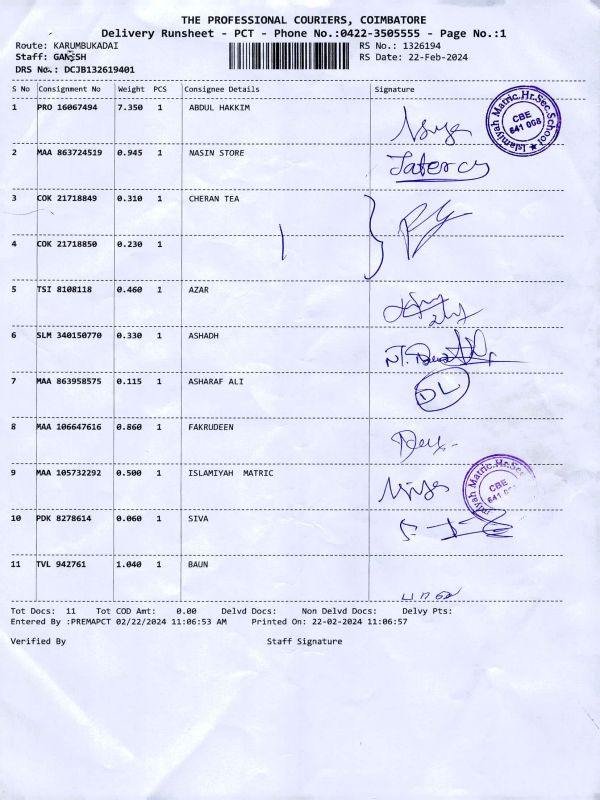 THE PROFESSIONAL COURIERS, COIMBATORE
Delivery Runsheet - PCT - Phone No.:0422-3505555 - Page No.:1
Route: KARUMBUKADAI RS No.: 1326194
Staff: GANESH RS Date: 22-Feb-2024
DRS No.: DCJB132619401
S No Consignment No Weight PCS Consignee Details Signature
1 PRO 16067494 7.350 1 ABDUL HAKKIM
Islamiyah Matric.Hr.Sec.School
CBE
641 008
2 MAA 863724519 0.945 1 NASIN STORE
3 COK 21718849 0.310 1 CHERAN TEA
4 COK 21718850 0.230 1
5 TSI 8108118 0.460 1 AZAR
6 SLM 340150770 0.330 1 ASHADH
7 MAA 863958575 0.115 1 ASHARAF ALI
DL
8 MAA 106647616 0.860 1 FAKRUDEEN
9 MAA 105732292 0.500 1 ISLAMIYAH MATRIC
Matric.Hr.Sec
CBE
641
10 PDK 8278614 0.060 1 SIVA
11 TVL 942761 1.040 1 BAUN
Tot Docs: 11 Tot COD Amt: 0.00 Delvd Docs: Non Delvd Docs: Delvy Pts:
Entered By :PREMAPCT 02/22/2024 11:06:53 AM Printed On: 22-02-2024 11:06:57
Verified By Staff Signature